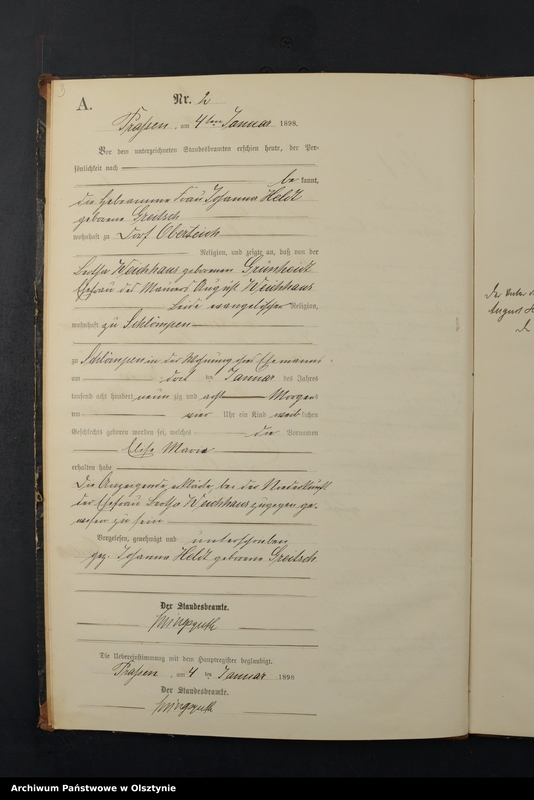 3
A.
Nr. 2
Prassen, am 4ten Januar 1898.
Vor dem unterzeichneten Standesbeamten erschien heute, der Per-
sönlichkeit nach
be kannt,
die Hebeamme Frau Johanna Heldt
geborene Greitsch
wohnhaft zu Dorf Oberteich
Religion, und zeigte an, daß von der
Bertha Weichhaus geborenen Grünheidt
Ehefrau des Maurers August Weichhaus
beide evangelischer Religion,
wohnhaft zu Schlömpen
zu Schlömpen in der Wohnung ihres Ehemannes
am dort ten Januar des Jahres
tausend acht hundert neun zig und acht Morgens
um vier Uhr ein Kind weib lichen
Geschlechts geboren worden sei, welches die Vornamen
Elise Marie
erhalten habe
Die Anzeigende erklärte, bei der Niederkunft
der Ehefrau Bertha Weichhaus zugegen ge-
wesen zu sein
Vorgelesen, genehmigt und unterschrieben
gez. Johanna Heldt geborene Greitsch
Der Standesbeamte.
Die Uebereinstimmung mit dem Hauptregister beglaubigt.
Prassen, am 4 ten Januar 1898
Der Standesbeamte.
August
Archiwum Państwowe w Olsztynie